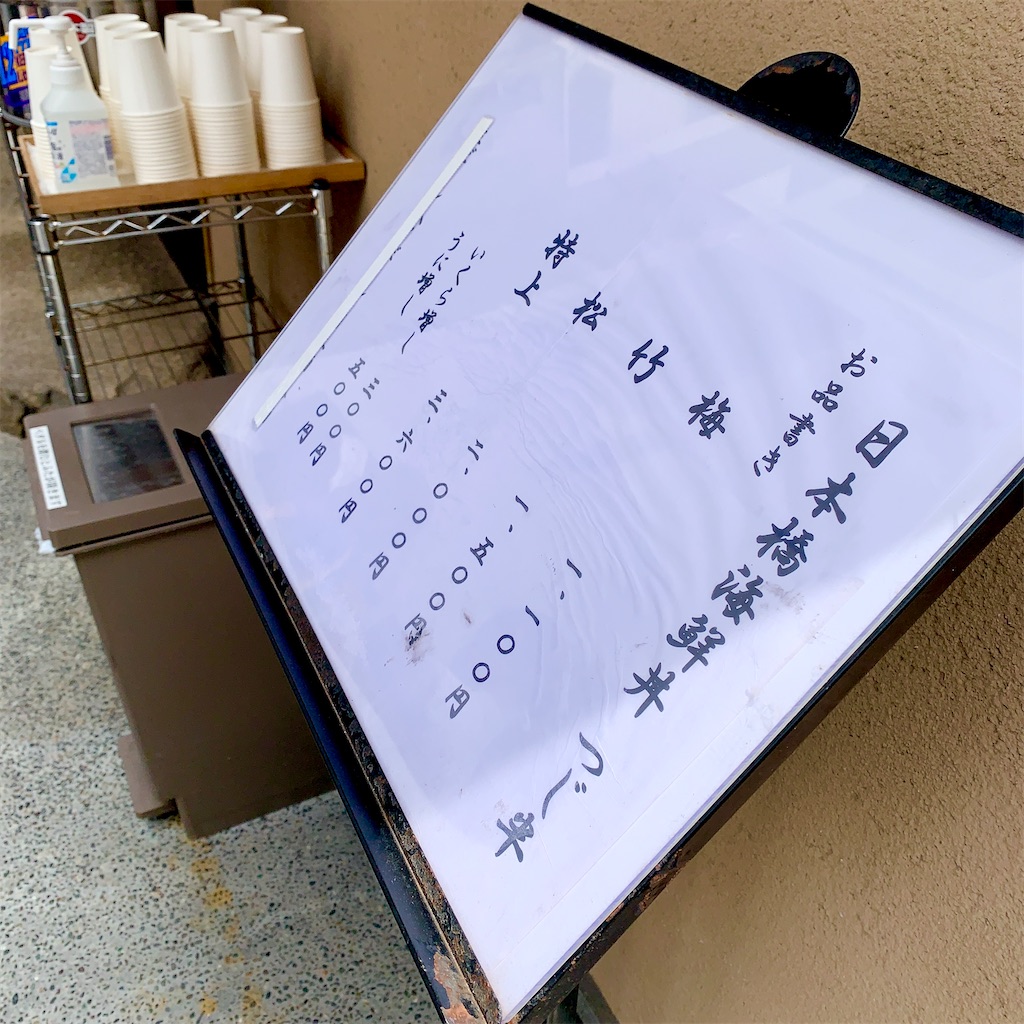 日本橋海鮮丼 つじ半
お品書き
梅 一、一〇〇円
竹 一、五〇〇円
松 二、〇〇〇円
特上 三、六〇〇円
いくら増し 三〇〇円
うに増し 五〇〇円